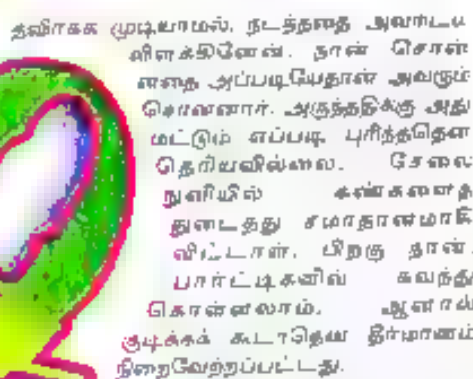 தவிர்க்க முடியாமல், நடந்ததை அவரிடம்
விளக்கினேன். நான் சொன்
னதை அப்படியேதான் அவரும்
சொன்னார். அருந்ததிக்கு அது
மட்டும் எப்படி புரிந்ததென
தெரியவில்லை. சேலை
நுனியில் கண்களைத்
துடைத்து சமாதானமாகி
விட்டாள். பிறகு நான்
பார்ட்டிகளில் கலந்து
கொள்ளலாம். ஆனால்
குடிக்கக் கூடாதென தீர்மானம்
நிறைவேற்றப்பட்டது.